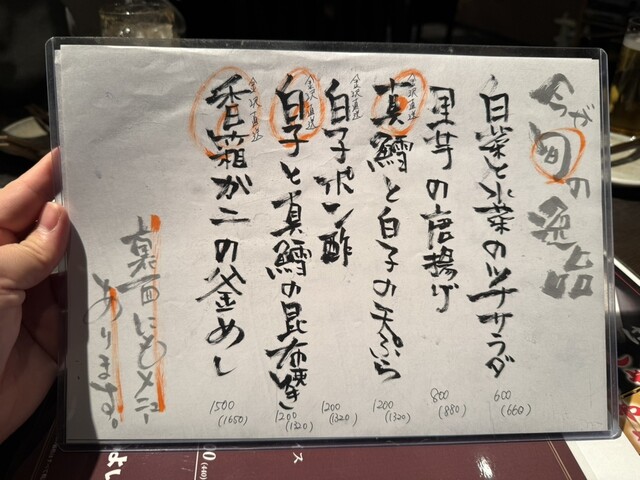 今が旬の逸品
白菜と水菜のツナサラダ
600
(660)
里芋の唐揚げ
800
(880)
金沢直送
真鱈と白子の天ぷら
1200
(1320)
白子ポン酢
1200
(1320)
金沢直送
白子と真鱈の昆布焼き
1200
(1320)
金沢直送
香箱がニの釜めし
1500
(1650)
裏面にもメニュー
あります。